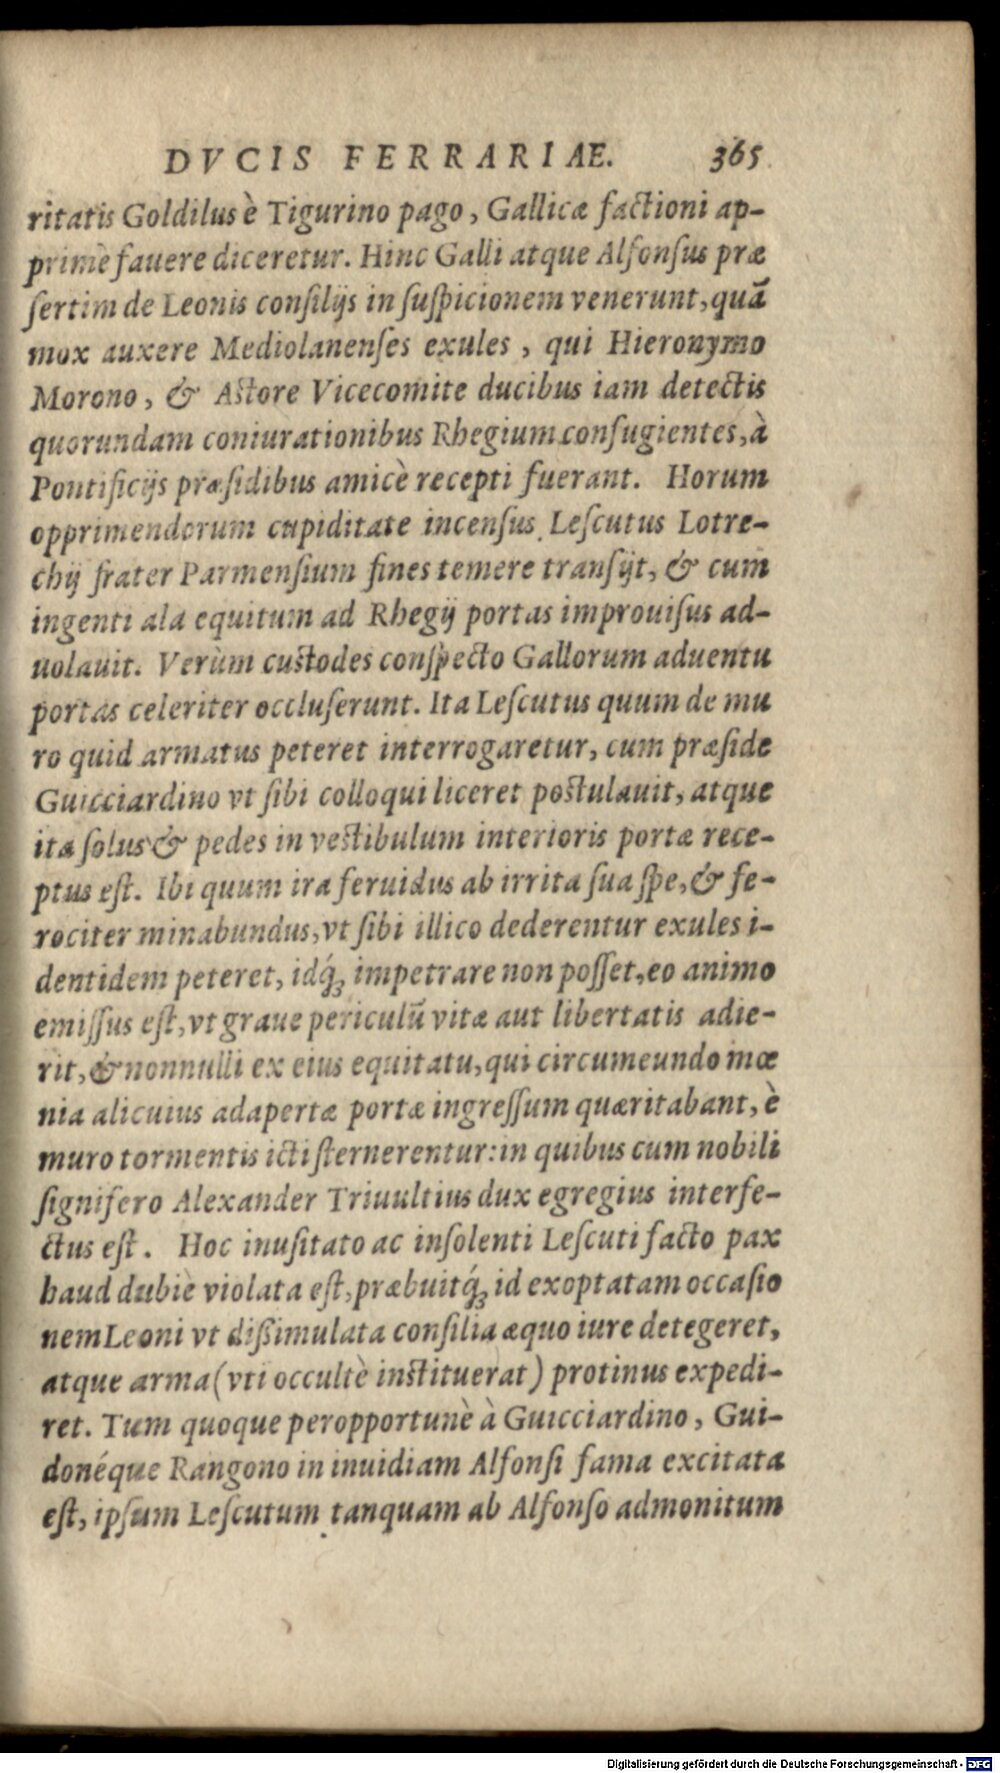 DVCIS FERRARIAE. 365
ritatis Goldilus è Tigurino pago, Gallicæ factioni ap-
primè fauere diceretur. Hinc Galli atque Alfonſus præ
ſertim de Leonis conſilijs in ſuſpicionem venerunt, quā
mox auxere Mediolanenſes exules, qui Hieronymo
Morono, & Astore Vicecomite ducibus iam detectis
quorundam coniurationibus Rhegium confugientes, à
Pontificijs præſidibus amicè recepti fuerant. Horum
opprimendorum cupiditate incenſus Leſcutus Lotre-
chij frater Parmenſium fines temere tranſijt, & cum
ingenti ala equitum ad Rhegij portas improuiſus ad-
uolauit. Verùm custodes conſpecto Gallorum aduentu
portas celeriter occluſerunt. Ita Leſcutus quum de mu
ro quid armatus peteret interrogaretur, cum præſide
Guicciardino vt ſibi colloqui liceret postulauit, atque
ita ſolus & pedes in vestibulum interioris portæ rece-
ptus eſt. Ibi quum ira feruidus ab irrita ſua ſpe, & fe-
rociter minabundus, vt ſibi illico dederentur exules i-
dentidem peteret, idq́ꝫ impetrare non poſſet, eo animo
emiſſus eſt, vt graue periculū vitæ aut libertatis adie-
rit, & nonnulli ex eius equitatu, qui circumeundo mœ
nia alicuius adapertæ portæ ingreſſum quæritabant, è
muro tormentis icti ſternerentur: in quibus cum nobili
ſignifero Alexander Triuultius dux egregius interfe-
ctus eſt. Hoc inuſitato ac inſolenti Leſcuti facto pax
haud dubiè violata eſt, præbuitq́ꝫ id exoptatam occaſio
nem Leoni vt dißimulata conſilia æquo iure detegeret,
atque arma (vti occultè instituerat) protinus expedi-
ret. Tum quoque peropportunè à Guicciardino, Gui-
donéque Rangono in inuidiam Alfonſi fama excitata
eſt, ipſum Leſcutum tanquam ab Alfonſo admonitum
Digitalisierung gefördert durch die Deutsche Forschungsgemeinschaft - DFG